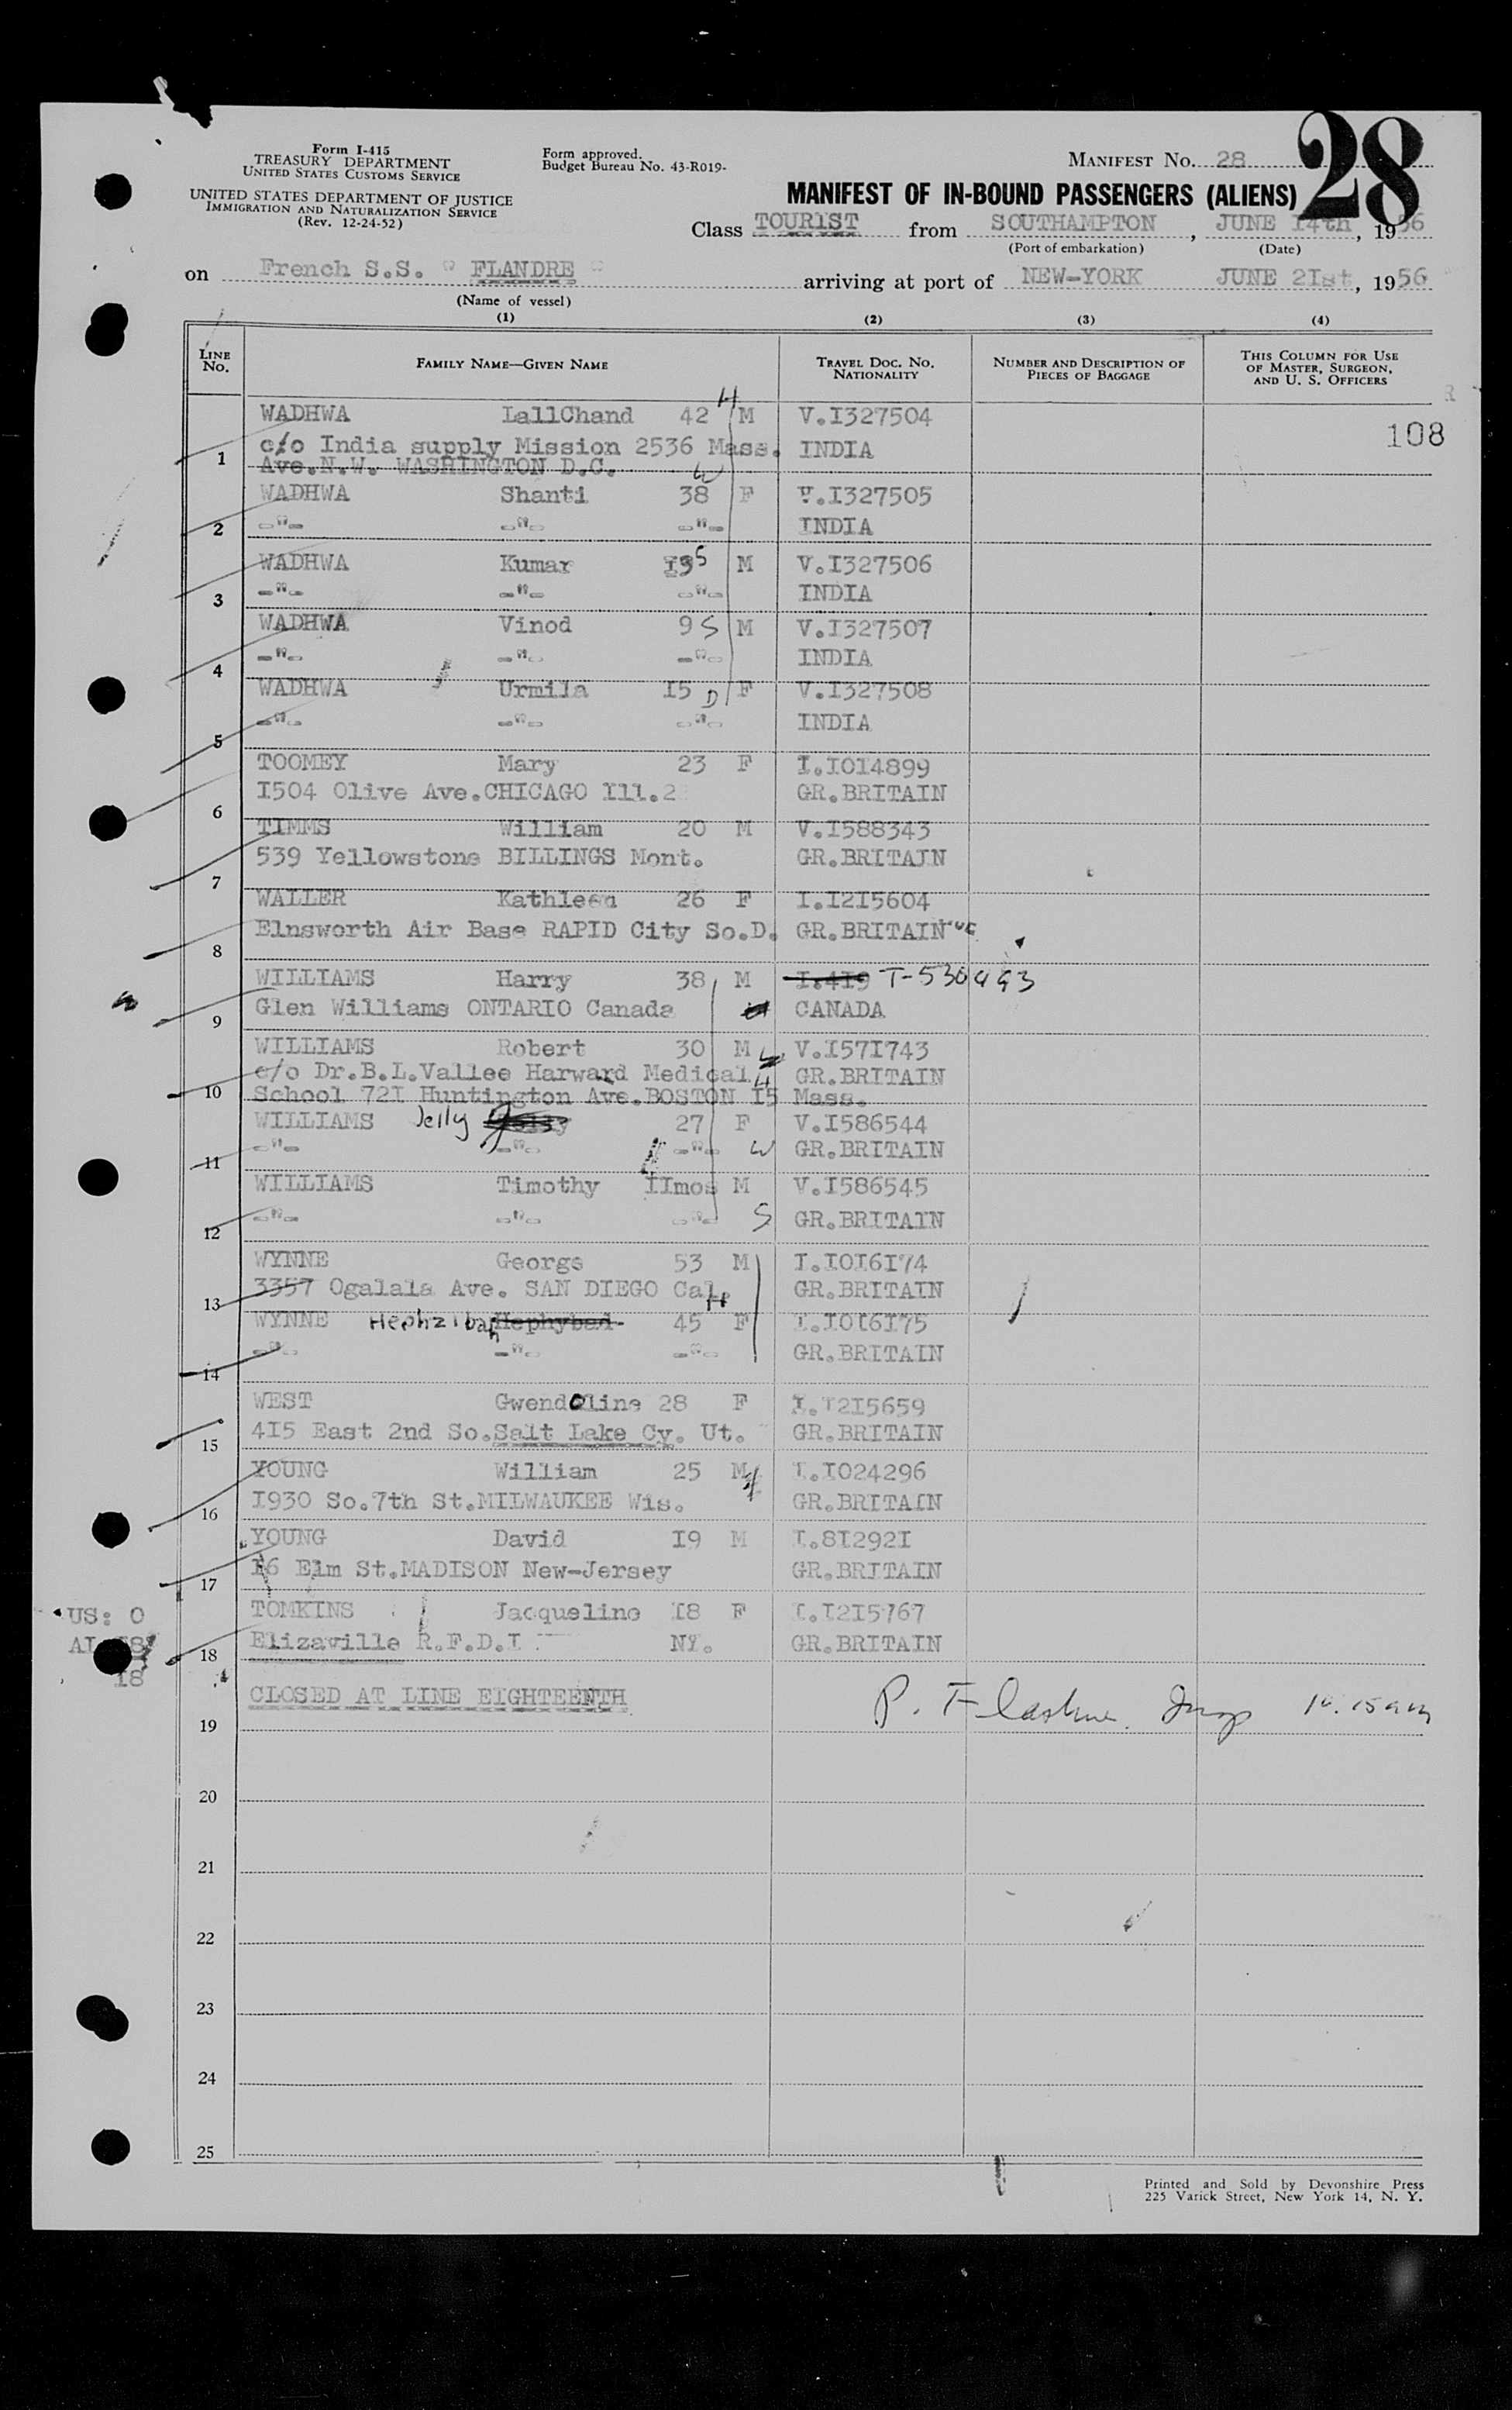 Form I-415
TREASURY DEPARTMENT
UNITED STATES CUSTOMS SERVICE
UNITED STATES DEPARTMENT OF JUSTICE
IMMIGRATION AND NATURALIZATION SERVICE
(Rev. 12-24-52)
Form approved.
Budget Bureau No. 43-R019-
MANIFEST No. 28
28
MANIFEST OF IN-BOUND PASSENGERS (ALIENS)
Class TOURIST from SOUTHAMPTON, JUNE 14th, 1956
(Port of embarkation) (Date)
on French S.S. " FLANDRE " arriving at port of NEW-YORK JUNE 2Ist, 1956
(Name of vessel)
(1) (2) (3) (4)
LINE No. FAMILY NAME—GIVEN NAME TRAVEL DOC. No. NATIONALITY NUMBER AND DESCRIPTION OF PIECES OF BAGGAGE THIS COLUMN FOR USE OF MASTER, SURGEON, AND U. S. OFFICERS
108
WADHWA LallChand 42 H M V.I327504
1 c/o India supply Mission 2536 Mass. INDIA
Ave.N.W. WASHINGTON D.C.
WADHWA Shanti 38 W F V.I327505
2 -"- -"- -"- INDIA
WADHWA Kumar I3 S M V.I327506
3 -"- -"- -"- INDIA
WADHWA Vinod 9 S M V.I327507
4 -"- -"- -"- INDIA
WADHWA Urmila I5 D F V.I327508
5 -"- -"- -"- INDIA
TOOMEY Mary 23 F I.I0I4899
6 I504 Olive Ave.CHICAGO Ill.2 GR.BRITAIN
TIMMS William 20 M V.I588343
7 539 Yellowstone BILLINGS Mont. GR.BRITAIN
WALLER Kathleen 26 F I.I2I5604
8 Elnsworth Air Base RAPID City So.D. GR.BRITAIN
WILLIAMS Harry 38 M I.4I9 T-530493
9 Glen Williams ONTARIO Canada CANADA
WILLIAMS Robert 30 M V.I57I743
10 c/o Dr.B.L.Vallee Harward Medical H GR.BRITAIN
School 72I Huntington Ave.BOSTON I5 Mass.
WILLIAMS Jelly 27 F V.I586544
11 -"- -"- -"- W GR.BRITAIN
WILLIAMS Timothy IImos M V.I586545
12 -"- -"- -"- S GR.BRITAIN
WYNNE George 53 M I.I0I6I74
13 3357 Ogalala Ave. SAN DIEGO Cal. H GR.BRITAIN
WYNNE Hephzibah Hephybad 45 F I.I0I6I75
14 -"- -"- -"- GR.BRITAIN
WEST Gwendoline 28 F I.I2I5659
15 4I5 East 2nd So.Salt Lake Cy. Ut. GR.BRITAIN
YOUNG William 25 M I.I024296
16 I930 So.7th St.MILWAUKEE Wis. GR.BRITAIN
YOUNG David I9 M I.8I292I
17 I6 Elm St.MADISON New-Jersey GR.BRITAIN
US: 0
TOMKINS Jacqueline I8 F I.I2I5767
18 Elizaville R.F.D.I NY. GR.BRITAIN
18
CLOSED AT LINE EIGHTEENTH
19 P. 10.15am
20
21
22
23
24
25
Printed and Sold by Devonshire Press
225 Varick Street, New York 14, N. Y.